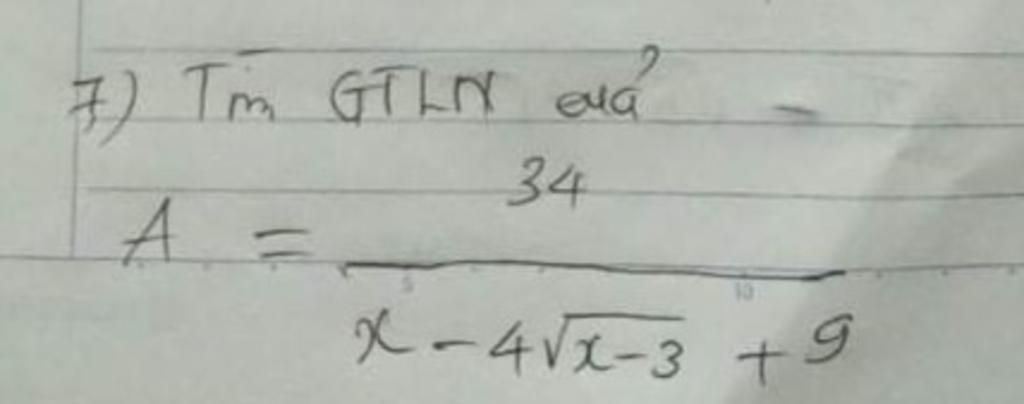 7) Tìm GTLN của
A = 34 / (x - 4√(x-3) + 9)
5 10